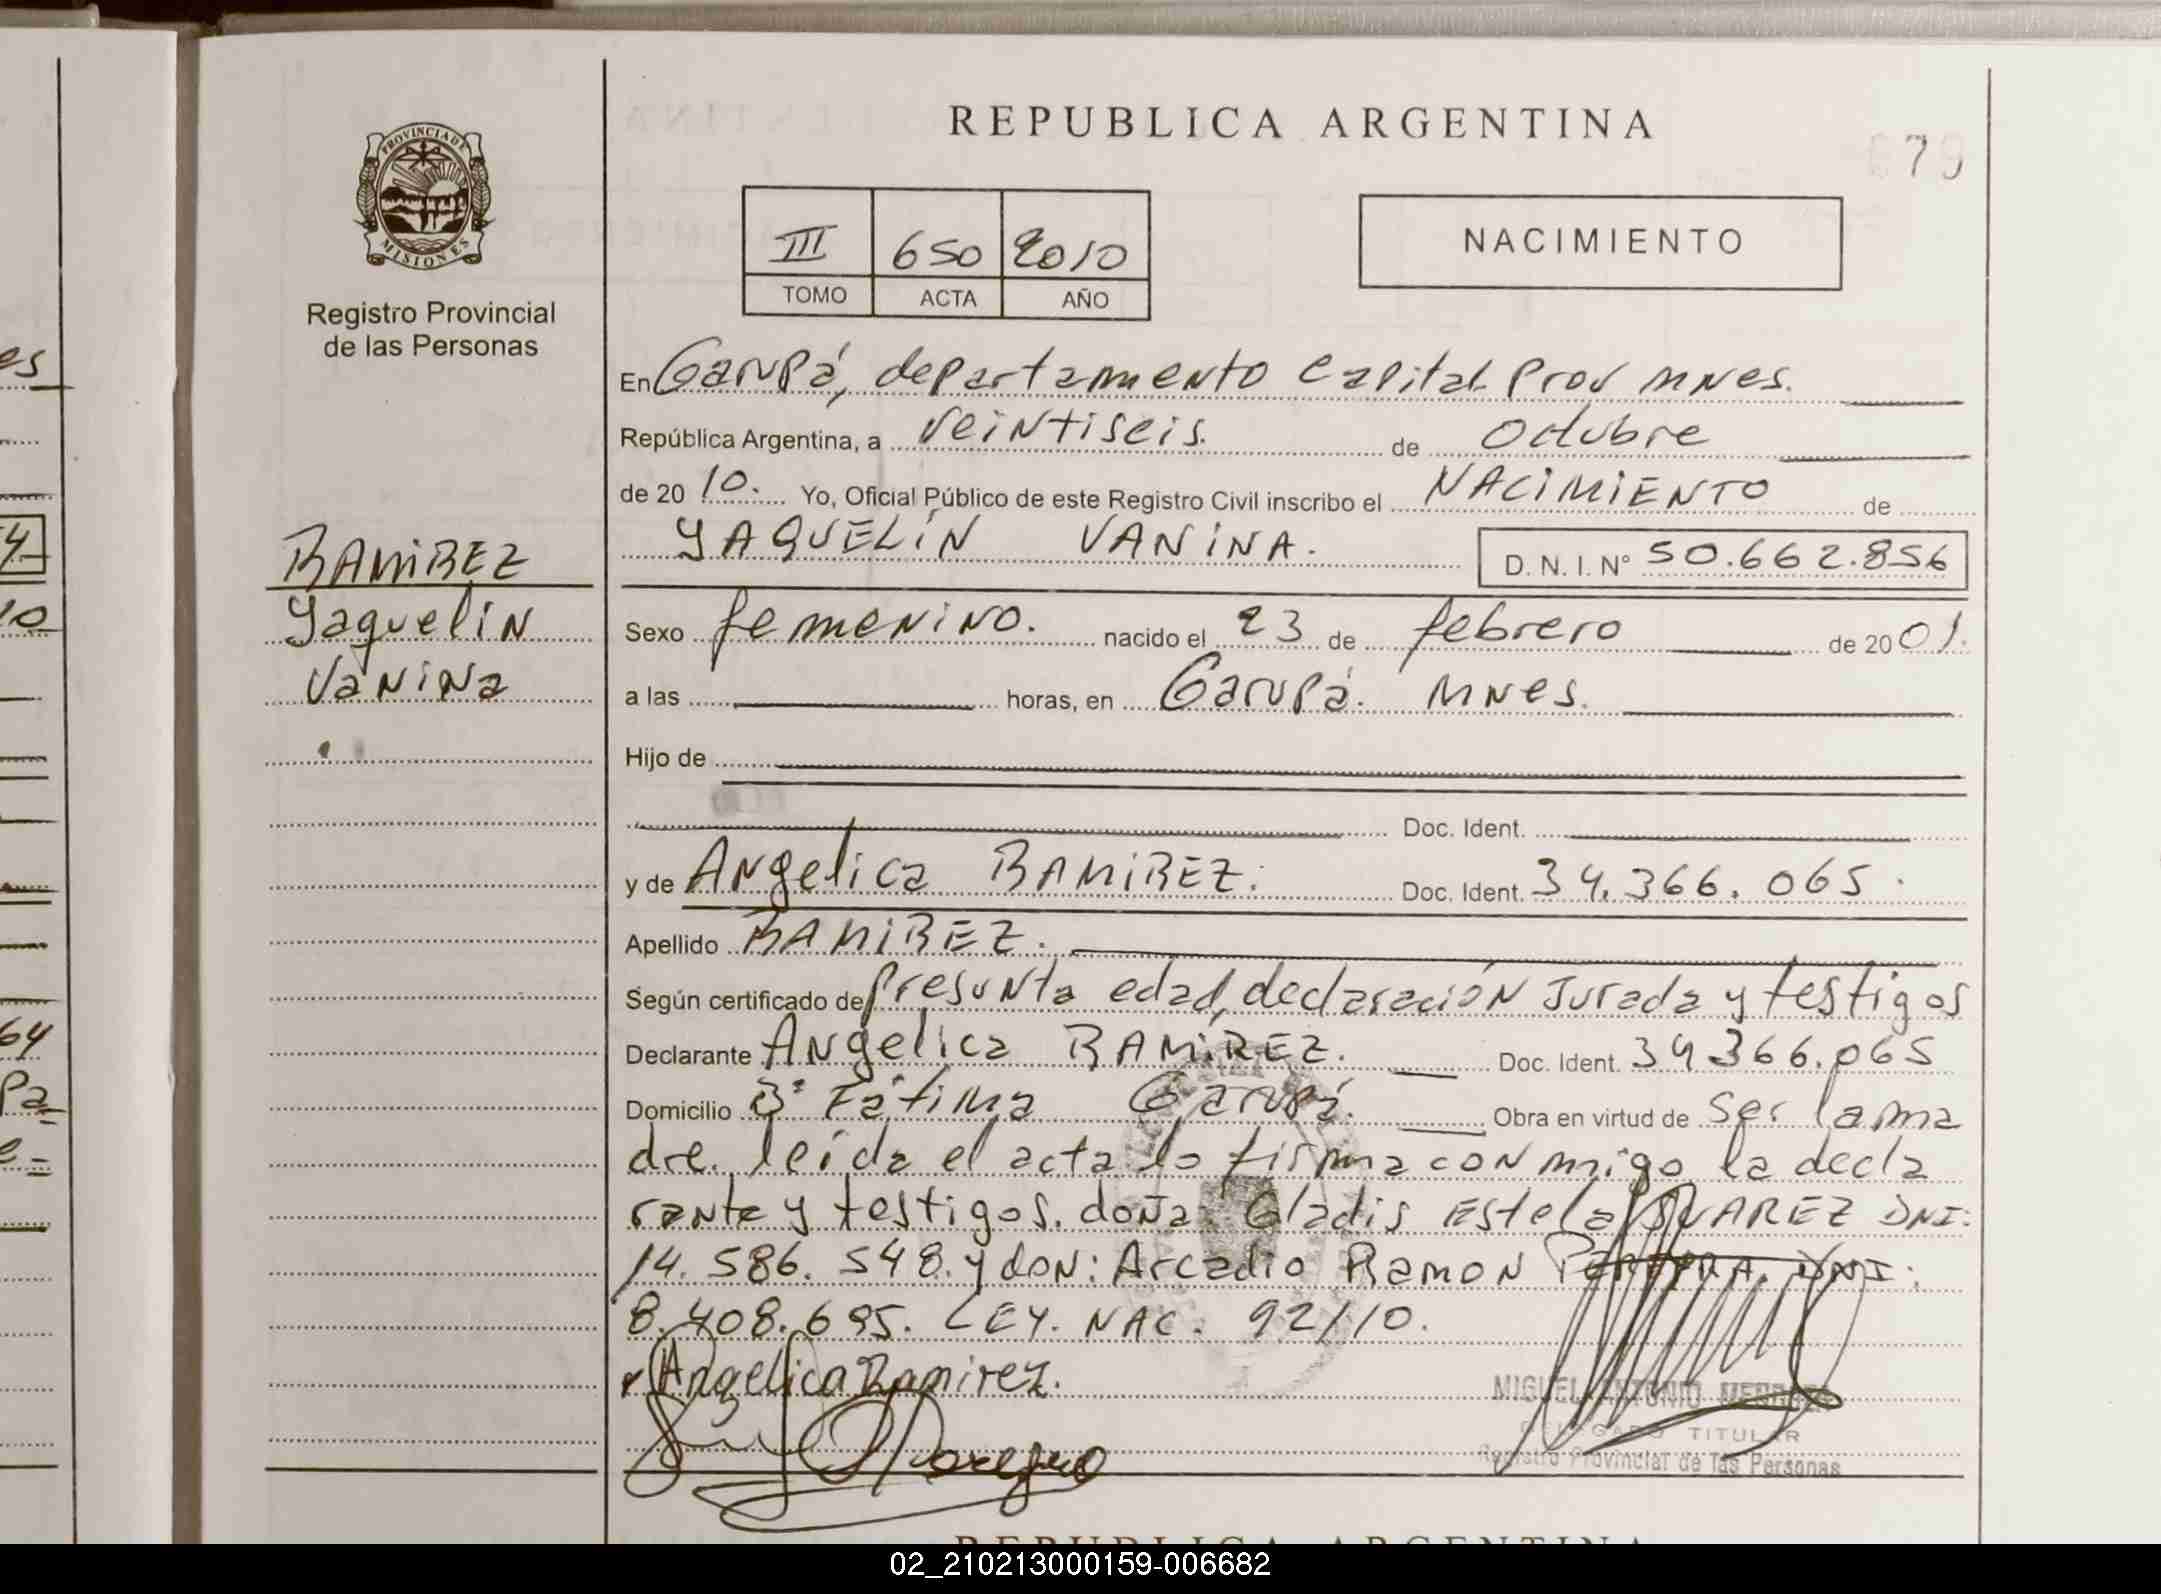 REPUBLICA ARGENTINA
79
PROVINCIA DE
MISIONES
Registro Provincial
de las Personas
III 650 2010
TOMO ACTA AÑO
NACIMIENTO
En Garupá, departamento Capital Prov mnes.
República Argentina, a veintiseis. de octubre
de 20 10. Yo, Oficial Público de este Registro Civil inscribo el NACIMIENTO de
YAQUELIN VANINA. D. N. I. N° 50.662.856
RAMIREZ
Yaquelin
Vanina
Sexo femenino. nacido el 23 de febrero de 20 01.
a las horas, en Garupá. mnes.
Hijo de
Doc. Ident.
y de Angelica RAMIREZ. Doc. Ident. 34.366.065.
Apellido RAMIREZ.
Según certificado de presunta edad, declaración Jurada y testigos
Declarante Angelica RAMIREZ. Doc. Ident. 34366.065
Domicilio B° Fátima Garupá. Obra en virtud de ser la ma
dre. leída el acta lo firma conmigo la decla
rante y testigos. doña: Gladis Estela SUAREZ DNI:
14.586.548. y don: Arcadio Ramon DNI:
8.408.695. LEY. NAC. 92/10.
Angelica Ramirez.
MIGUEL ANTONIO
DELEGADO TITULAR
Registro Provincial de las Personas
REPUBLICA ARGENTINA
02_210213000159-006682